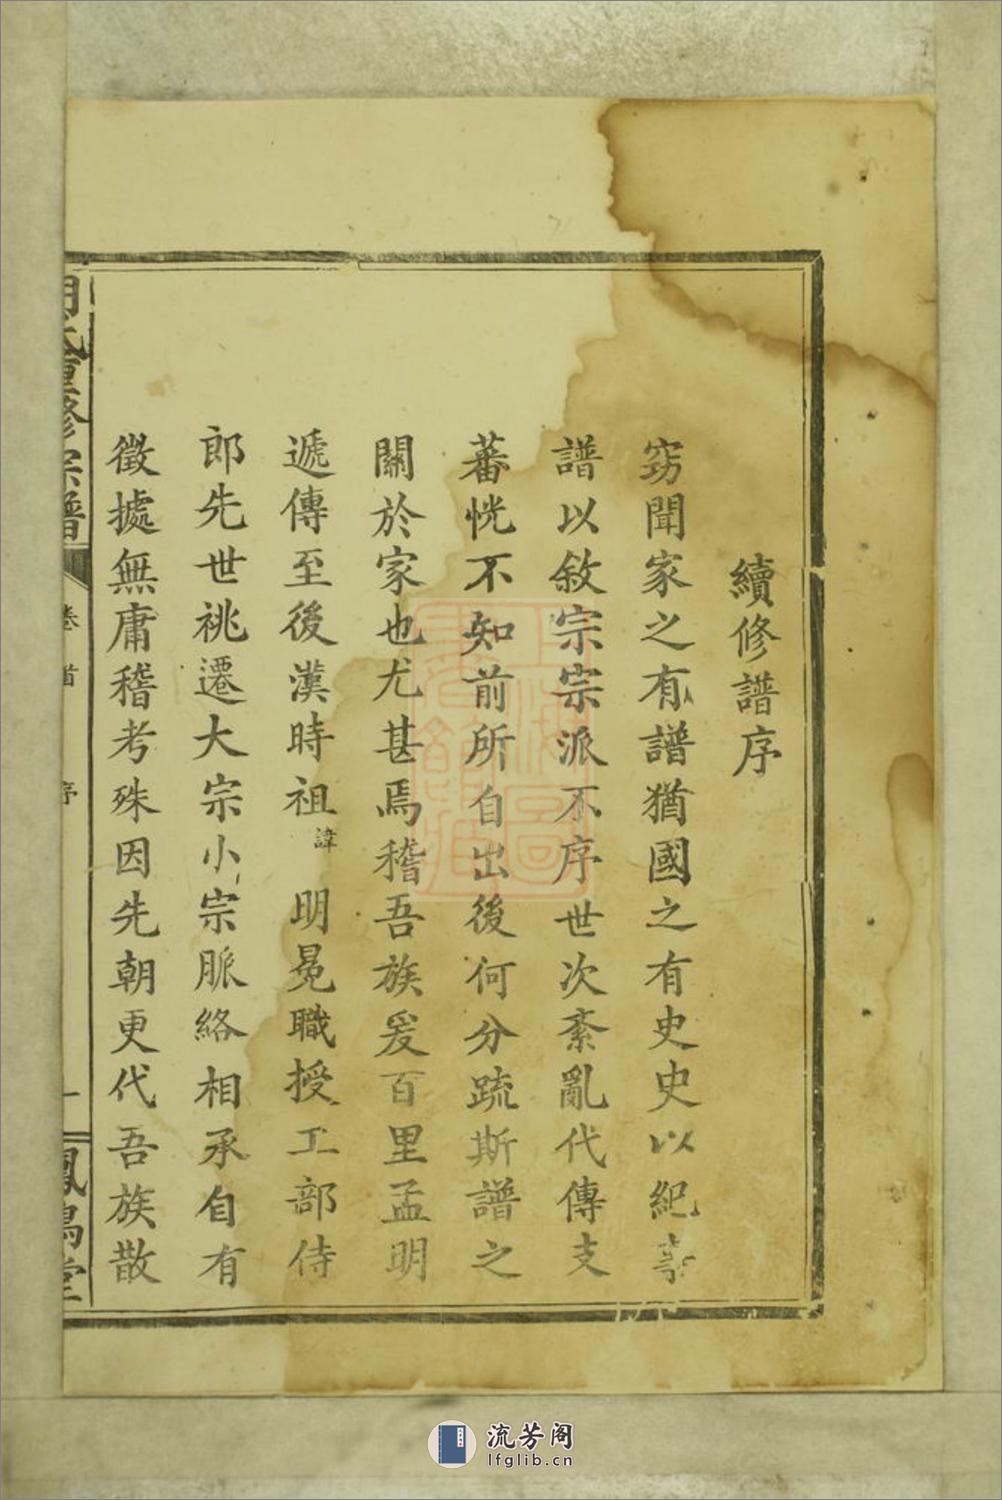 續修譜序
窃聞家之有譜猶國之有史史以紀事
譜以敘宗宗派不序世次紊亂代傳支
蕃恍不知前所自出後何分疏斯譜之
關於家也尤甚焉稽吾族爰百里孟明
遞傳至後漢時祖諱 明晃職授工部侍
郎先世祧遷大宗小宗脈絡相承自有
徵據無庸稽考殊因先朝更代吾族散
明氏重修宗譜 卷首 序 一 鳳鳴堂
流芳阁
lfglib.cn